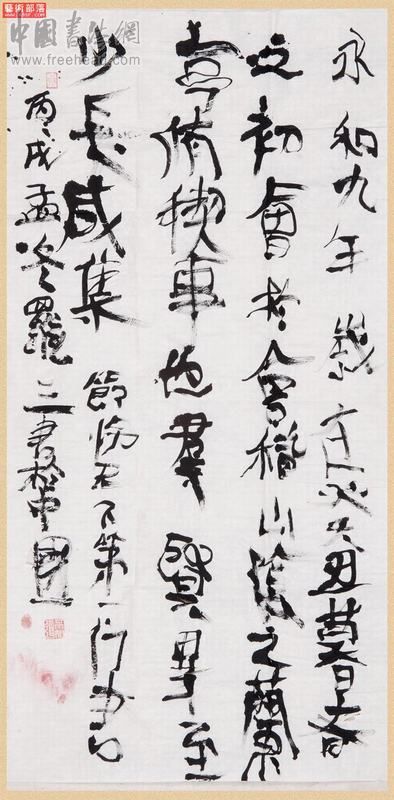 藝術部落
中國書法網
www.freehead.com
永和九年歲在癸丑暮春
之初會於會稽山陰之蘭
亭脩禊事也羣賢畢至
少長咸集 節臨天下第一行書
丙戌孟冬 三書於中國